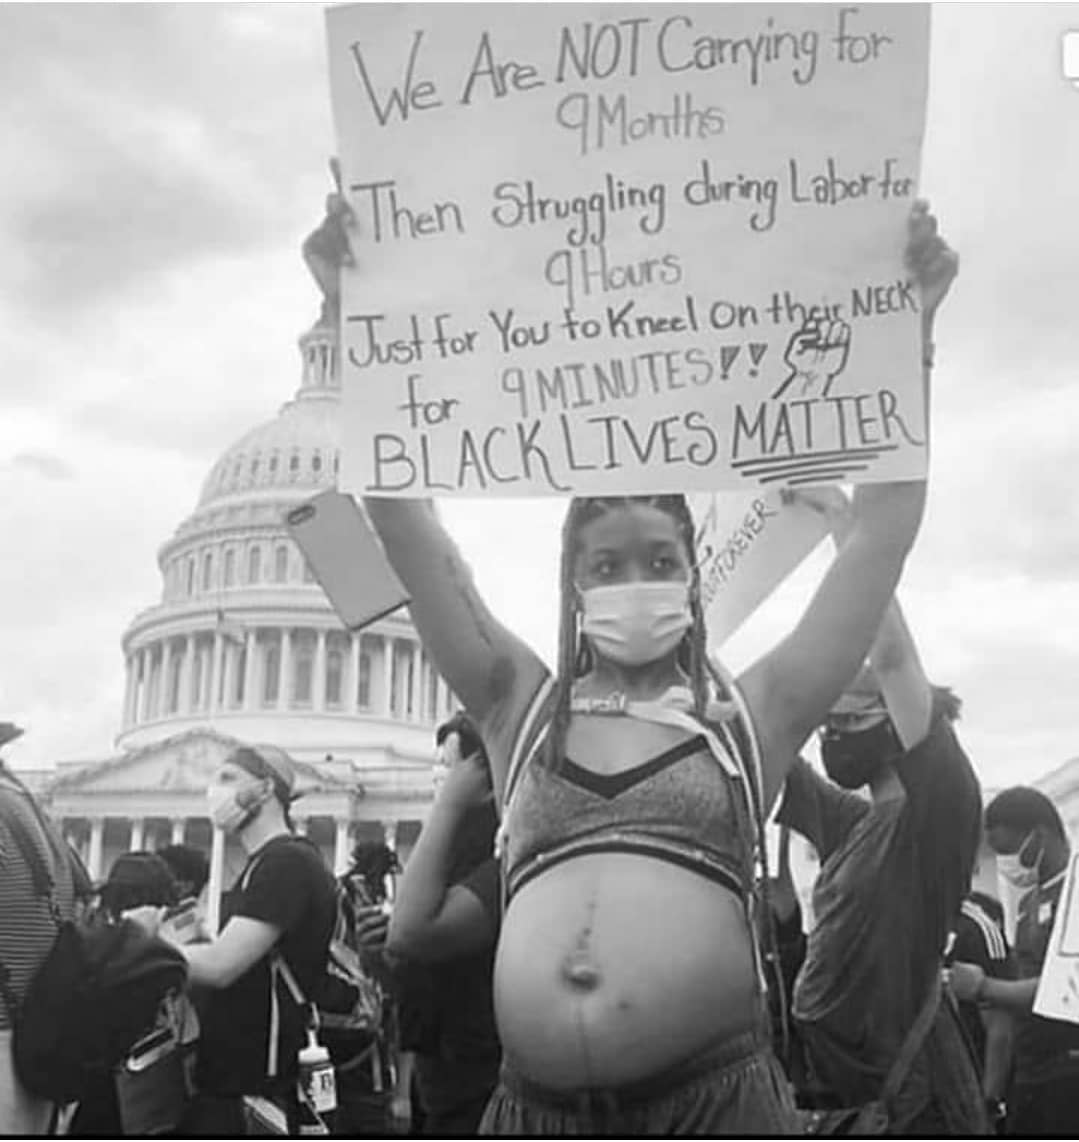 We Are NOT Carrying for
9 Months
Then Struggling during Labor for
9 Hours
Just for You to Kneel On their NECK
for 9 MINUTES!!
BLACK LIVES MATTER
FOREVER